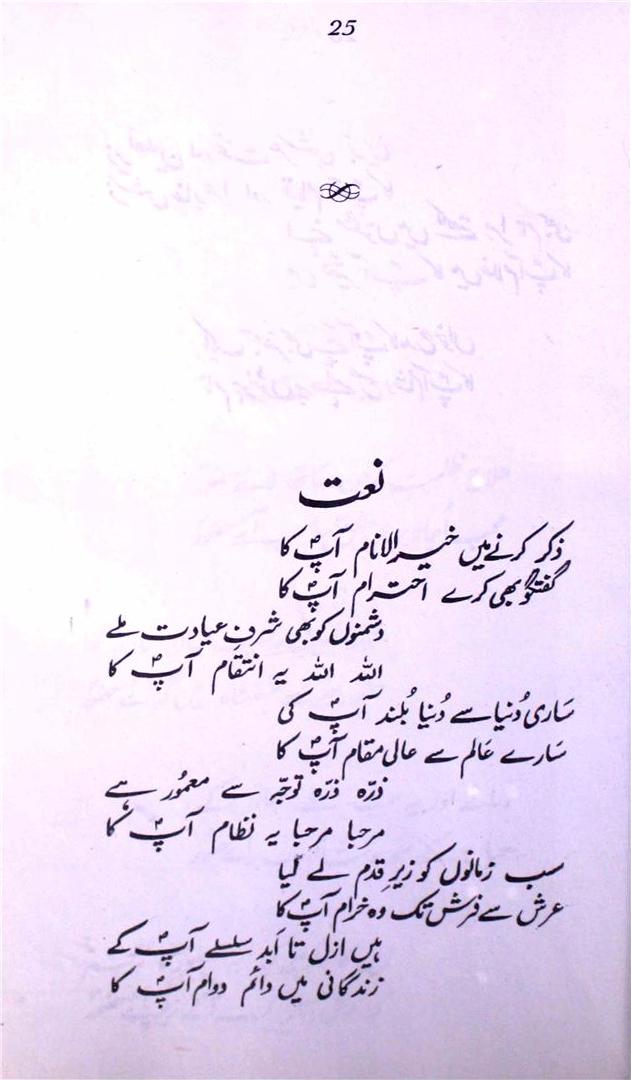 25
نعت
ذکر کرنے میں خیر الانام آپؐ کا
گفتگو بھی کرے احترام آپؐ کا
دشمنوں کو بھی شرفِ عیادت ملے
اللہ اللہ یہ انتقام آپؐ کا
ساری دُنیا سے دُنیا بُلند آپؐ کی
سارے عالم سے عالی مقام آپؐ کا
ذرّہ ذرّہ توجّہ سے معمُور ہے
مرحبا مرحبا یہ نظام آپؐ کا
سب زمانوں کو زیرِ قدم لے گیا
عرش سے فرش تک وہ خرام آپؐ کا
ہیں ازل تا اَبد سلسلے آپؐ کے
زندگانی میں دائم دوام آپؐ کا